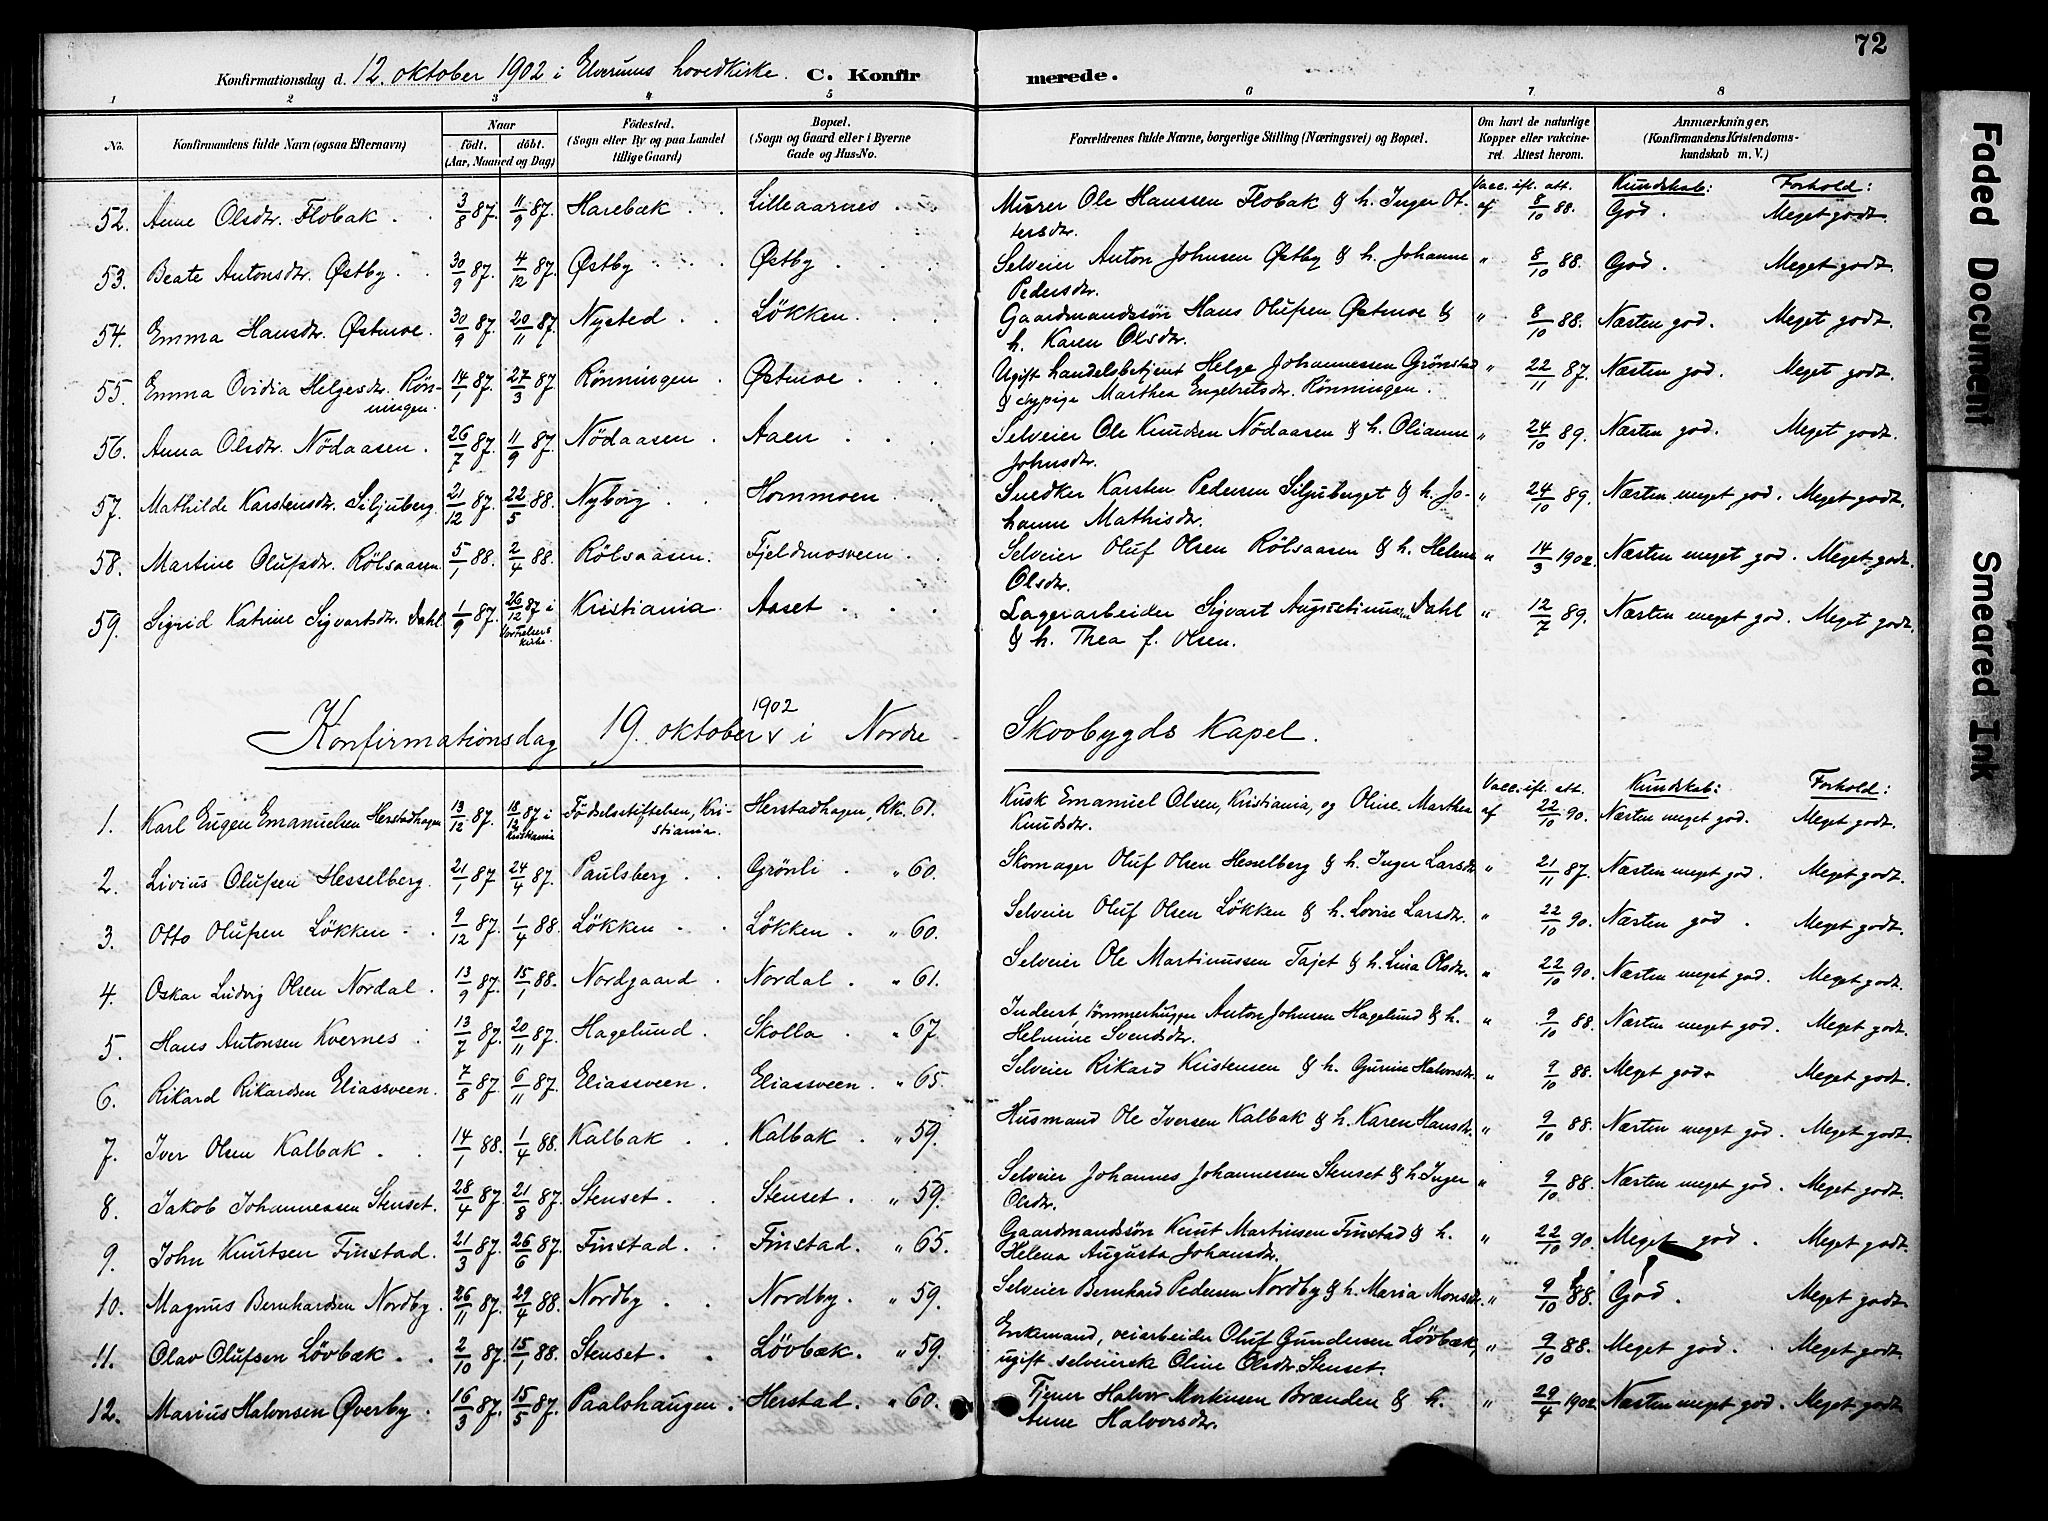 72
Konfirmationsdag d. 12. oktober 1902 i Elverums hovedkirke. C. Konfirmerede.
1 2 3 4 5 6 7 8
No. Konfirmandens fulde Navn (ogsaa Efternavn) Naar født. døbt. (Aar, Maaned og Dag) Fødested. (Sogn eller By og paa Landet tillige Gaard) Bopæl. (Sogn og Gaard eller i Byerne Gade og Hus-No. Forældrenes fulde Navne, borgerlige Stilling (Næringsvei) og Bopæl. Om havt de naturlige Kopper eller vakcineret. Attest herom. Anmærkninger. (Konfirmandens Kristendomskundskab m. V.)
Vacc. ifl. att. Kundskab: Forhold:
52. Anne Olsdtr. Flobak. 3/8 87. 11/9 87. Harebæk. Lilleaarnes. Murer Ole Hanssen Flobak & h. Inger Ottersdtr. af 8/10 88. God. Meget godt.
53. Beate Antonsdtr. Østby. 30/9 87. 4/12 87. Østby. Østby. Selveier Anton Johnsen Østby & h. Johanne Pedersdtr. " 8/10 88. God. Meget godt.
54. Emma Hansdtr. Østmoe. 30/9 87. 20/11 87. Nysted. Løkken. Gaardmandssøn Hans Olufsen Østmoe & h. Karen Olsdtr. " 8/10 88. Næsten god. Meget godt.
55. Emma Ovidia Helgesdtr. Rønningen. 14/1 87. 27/3 87 Rønningen. Østmoe. Ugift handelsbetjent Helge Johannessen Grønstad & pige Marthea Engebretsdtr. Rønningen. " 22/11 87. Næsten god. Meget godt.
56. Anna Olsdtr. Nödaasen. 26/7 87. 11/9 87. Nödaasen. Aaen. Selveier Ole Knudsen Nödaasen & h. Olianne Johnsdtr. " 24/10 89. Næsten god. Meget godt.
57. Mathilde Karstensdtr. Siljuberg. 21/12 87. 22/5 88. Nyborg. Hornmoen. Snedker Karsten Pedersen Siljuberget & h. Johanne Mathisdtr. " 24/10 89. Næsten meget god. Meget godt.
58. Martine Olufsdtr. Rölsaasen. 5/1 88. 2/4 88. Rölsaasen. Fjeldmosveen. Selveier Oluf Olsen Rölsaasen & h. Helene Olsdtr. " 14/3 1902. Næsten meget god. Meget godt.
59. Sigrid Katrine Sigvartsdtr. Dahl. 1/9 87. 26/12 87 i kirke. Kristiania. Aaset. Lagerarbeider Sigvart Dahl & h. Thea f. Olsen. " 12/7 89. Næsten meget god. Meget godt.
Konfirmationsdag 19. oktober 1902 i Nordre Skovbygds Kapel.
Vacc. ifl. att. Kundskab: Forhold:
1. Karl Eugen Emanuelsen Herstadhagen 13/12 87. 18/12 87 i Kristiania Födselsstiftelsen, Kristiania. Herstadhagen, Rk. 61. Kusk Emanuel Olsen, Kristiania, og Oline Marthea Knudsdtr. af 22/10 90. Næsten meget god. Meget godt.
2. Livius Olufsen Hesselberg. 21/1 87 24/4 87. Paulsberg. Grönli. " 60. Skomager Oluf Olsen Hesselberg & h. Inger Larsdtr. " 21/11 87. Næsten meget god. Meget godt.
3. Otto Olufsen Løkken. 9/12 87. 1/4 88. Løkken. Løkken. " 60. Selveier Oluf Olsen Løkken & h. Lovise Larsdtr. " 22/10 90. Næsten god. Meget godt.
4. Oskar Ludvig Olsen Nordal. 13/9 87. 15/1 88. Nordgaard. Nordal. " 61. Selveier Ole Martinussen Tajet & h. Lina Olsdtr. " 22/10 90. Næsten meget god. Meget godt.
5. Hans Antonsen Kvernes. 13/7 87. 20/11 87. Hagelund. Skolla. " 67. Inderst, tömmerhugger Anton Johnsen Hagelund & h. Helmine Svendsdtr. " 9/10 88. Næsten meget god. Meget godt.
6. Rikard Rikardsen Eliassveen. 7/8 87. 6/11 87. Eliassveen. Eliassveen. " 65. Selveier Rikard Kristensen & h. Gurine Halvorsdtr. " 9/10 88. Meget god. Meget godt.
7. Iver Olsen Kalbak. 14/1 88. 1/4 88. Kalbak. Kalbak. " 59. Husmand Ole Iversen Kalbak & h. Karen Hansdtr. " 9/10 88. Næsten meget god. Meget godt.
8. Jakob Johannessen Stenset. 28/4 87. 21/8 87. Stenset. Stenset. " 59. Selveier Johannes Johannessen Stenset & h. Inger Olsdtr. " 9/10 88. Næsten meget god. Meget godt.
9. John Knutsen Finstad. 21/3 87. 26/6 87. Finstad. Finstad. " 65. Gaardmandssön Knut Martinsen Finstad & h. Helena Augusta Johansdtr. " 22/10 90. Meget god. Meget godt.
10. Magnus Bernhardsen Nordby. 26/11 87. 29/4 88. Nordby. Nordby. " 59. Selveier Bernhard Pedersen Nordby & h. Maria Monsdtr. " 9/10 88. God. Meget godt.
11. Olav Olufsen Lövbæk. 2/10 87. 15/1 88. Stenset. Lövbæk. " 59. Enkemand, veiarbeider Oluf Gundersen Lövbæk, ugift selveierske Oline Olsdtr. Stenset. " 9/10 88. Meget god. Meget godt.
12. Marius Halvorsen Øverby. 16/3 87. 15/5 87. Paalshaugen. Herstad. " 60. Tjener Halvor Mortensen Brænden & h. Anne Halvorsdtr. " 29/4 1902. Næsten meget god. Meget godt.
Faded Document
Smeared Ink